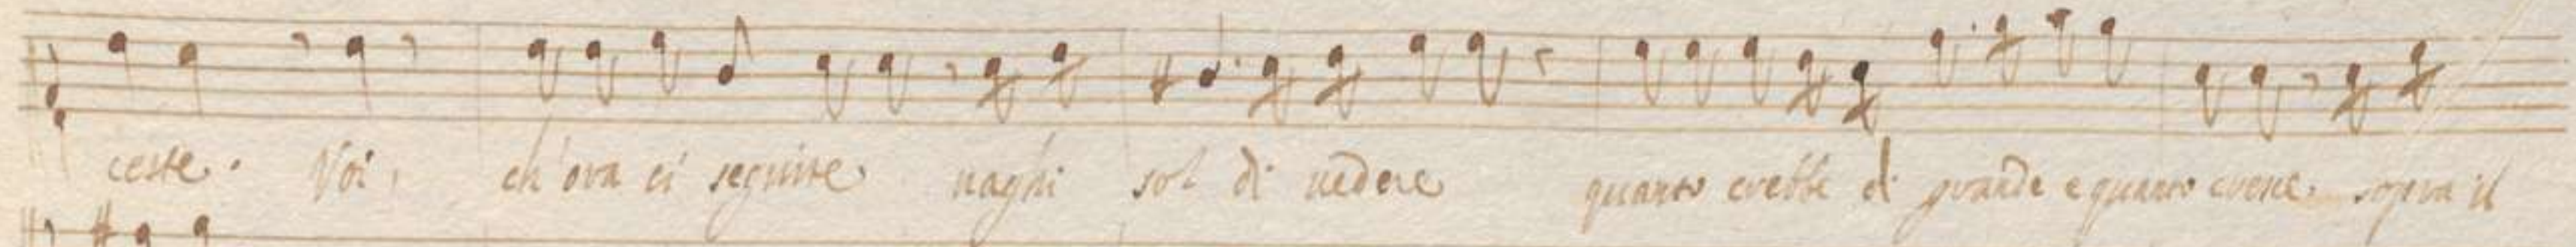 ceste. Voi, ch'ora ci seguite vaghi sol di vedere quanto crebbe di grande e quanto cresce sopra il